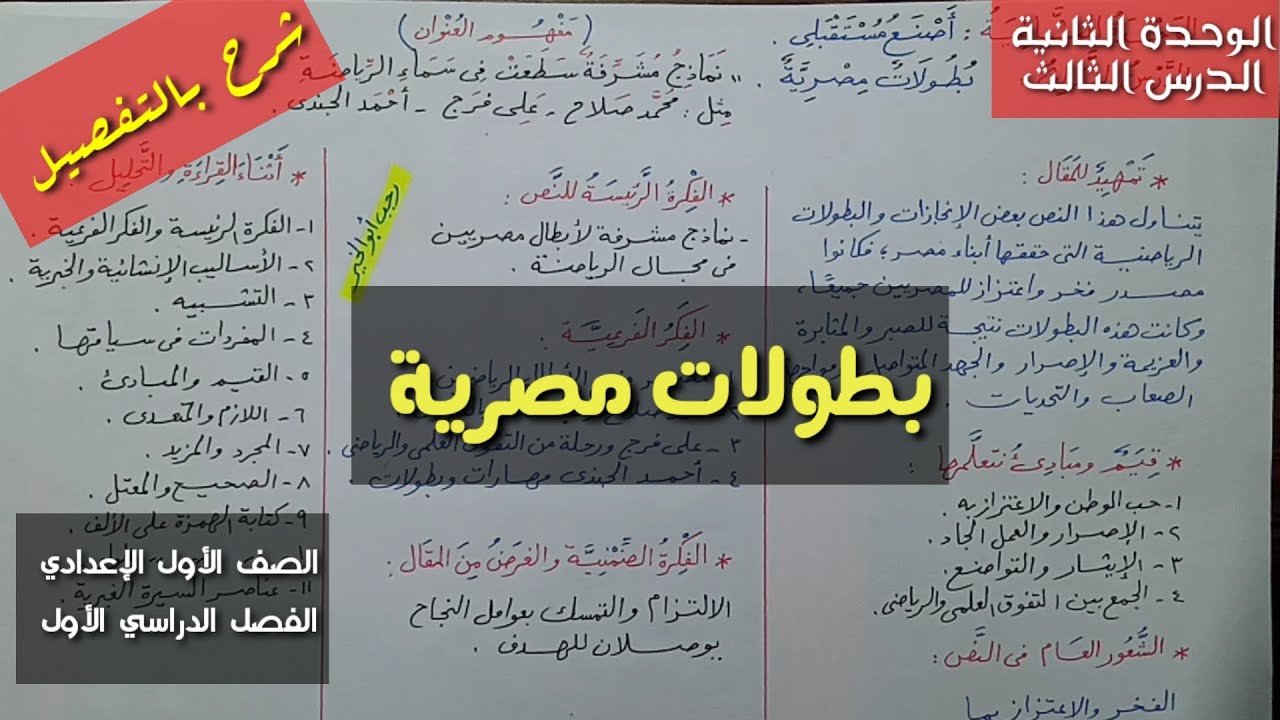 الوحدة الثانية
الدرس الثالث
شرح بالتفصيل
: أَصْنَعُ مُسْتَقْبَلِي .
بُطُولَاتٌ مِصْرِيَّةٌ .
(مَفْهُوم العُنْوان)
" نَمَاذِجُ مُشَرِّفَةٌ سَطَعَتْ فِي سَمَاءِ الرِّيَاضَةِ
مِثل : مُحَمَّد صَلاح - عَلِي فَرَج - أَحْمَد الجندى .
* تَمْهِيدٌ لِلمَقَال :
يتناول هذا النص بعض الإنجازات والبطولات
الرياضية التى حققها أبناء مصر ؛ فكانوا
مصدر فخر واعتزاز للمصريين جميعًا،
وكانت هذه البطولات نتيجة للصبر والمثابرة
والعزيمة والإصرار والجهد المتواصل
الصعاب والتحديات .
* قِيَمٌ ومَبادِئُ نتعلَّمها :
١- حب الوطن والاعتزاز به .
٢- الإصرار والعمل الجاد .
٣- الإيثار والتواضع .
٤- الجمع بين التفوق العلمى والرياضى .
* الشُّعُور العَام فى النَّص :
الفخر والاعتزاز بما
* الفِكْرَة الرَّئِيسَةُ للنَّص :
- نماذج مشرفة لأبطال مصريين
فى مجال الرياضة .
* الفِكَرُ الفَرعِيَّة :
٣- على فرج ورحلة من التفوق العلمى والرياضى .
٤- أحمد الجندى مهارات وبطولات .
* الفِكْرَة الضِّمْنِيَّة والغَرَضُ مِنَ المقَال :
الالتزام والتمسك بعوامل النجاح
يوصلان للهدف .
رجب أبو الخير
* أَثْنَاءَ القِرَاءَةِ والتَّحْلِيل :
١- الفكرة الرئيسة والفكر الفرعية .
٢- الأساليب الإنشائية والخبرية .
٣- التشبيه .
٤- المفردات فى سياقها .
٥- القيم والمبادئ .
٦- اللازم والمتعدى .
٧- المجرد والمزيد .
٨- الصحيح والمعتل .
٩- كتابة الهمزة على الألف .
١١- عناصر السيرة الغيرية .
بطولات مصرية
الصف الأول الإعدادي
الفصل الدراسي الأول